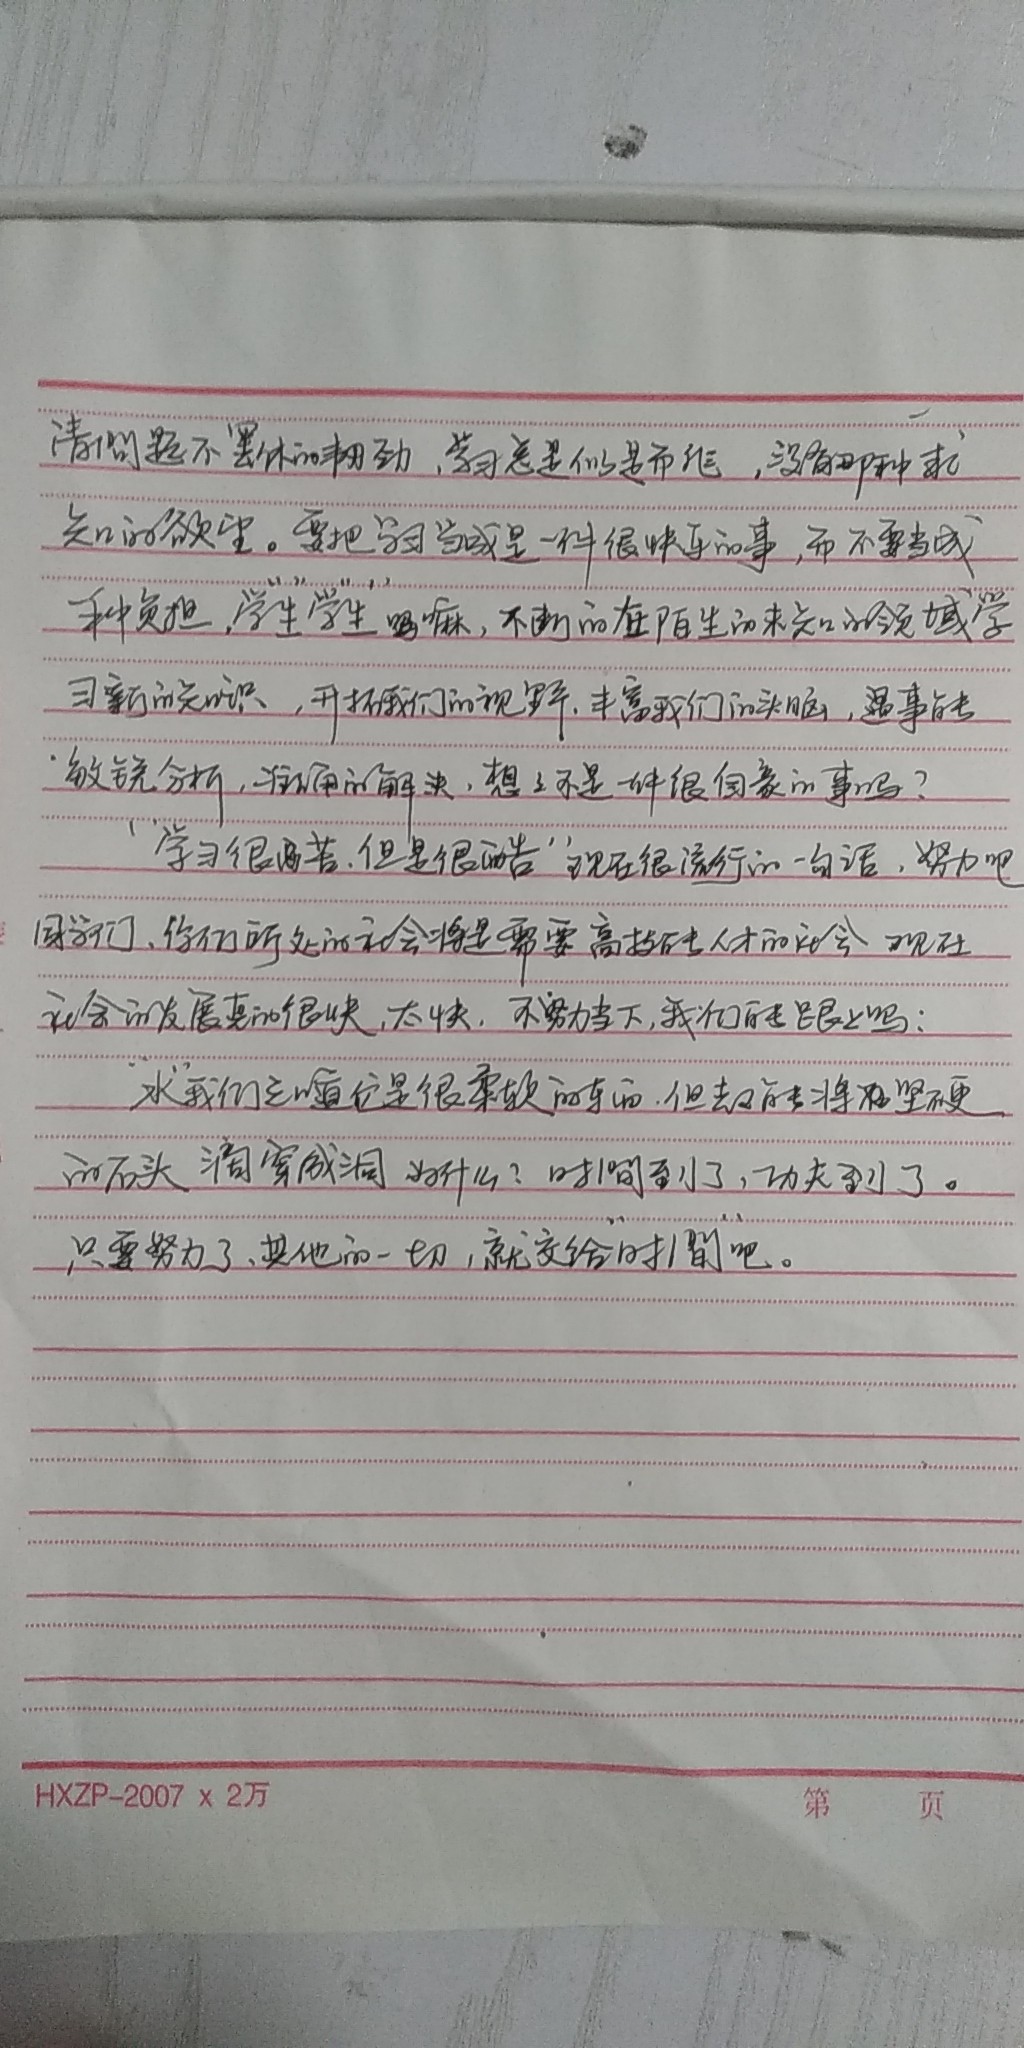 清问题不罢休的韧劲，学习总是似是而非，没有那种求
知的欲望。要把学习当成是一件很快乐的事，而不要当成一
种负担，"学生""学生"吗嘛，不断的在陌生的未知的领域学
习新的知识，开拓我们的视野、丰富我们的头脑，遇事能
敏锐分析，准确的解决，想想不是一件很自豪的事吗？
"学习很苦，但是很酷"现在很流行的一句话，努力吧
同学们、你们所处的社会将是需要高技能人才的社会 现在
社会的发展真的很快，太快，不努力当下，我们能跟上吗：
"水"我们知道它是很柔软的东西，但却能将坚硬
的石头滴穿成洞 为什么？时间到了，功夫到了。
只要努力了、其他的一切，就交给"时间"吧。
HXZP-2007 x 2万
第 页